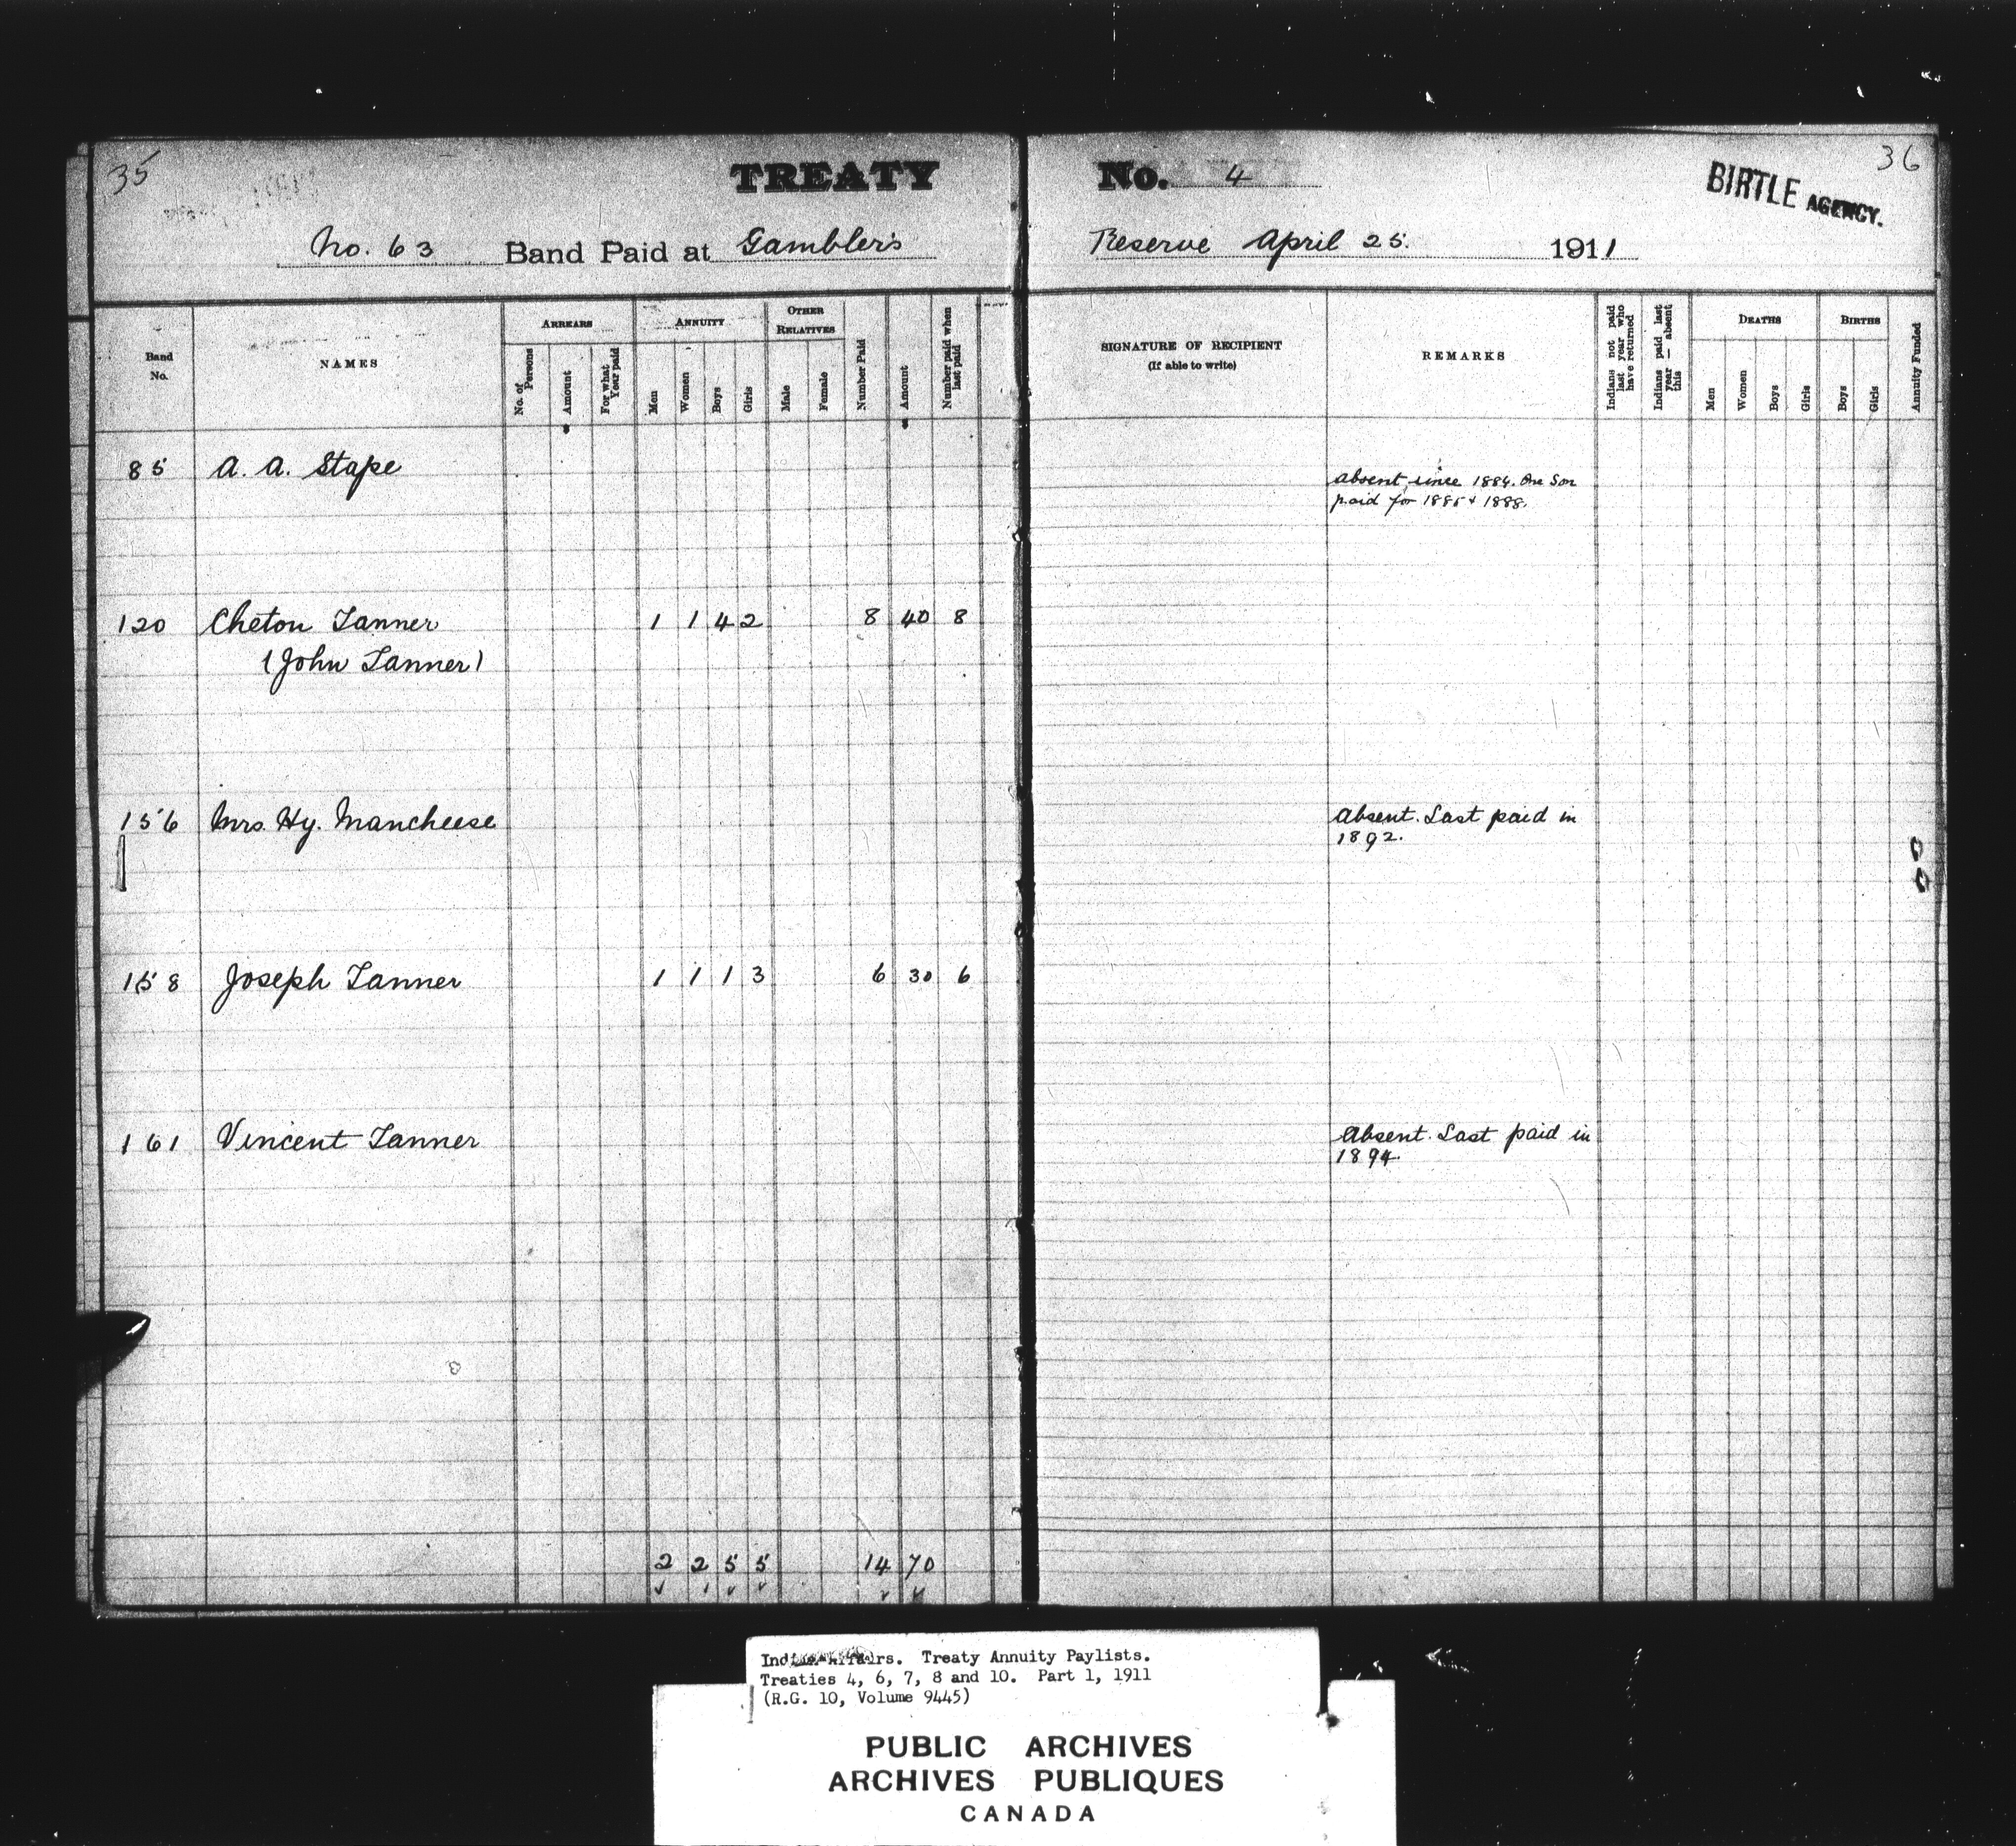 35
TREATY No. 4
36
BIRTLE AGENCY.
No. 63 Band Paid at Gambler's Reserve April 25. 1911
Band No.
NAMES
ARREARS
No. of Persons
Amount
For what Year paid
ANNUITY
Men
Women
Boys
Girls
OTHER RELATIVES
Male
Female
Number Paid
Amount
Number paid when last paid
SIGNATURE OF RECIPIENT
(If able to write)
REMARKS
Indians not paid last year who have returned
Indians paid last year — absent this
DEATHS
Men
Women
Boys
Girls
BIRTHS
Boys
Girls
Annuity Funded
85 A. A. Stape
Absent since 1884. One Son
paid for 1885 & 1888.
120 Cheton Tanner 1 1 4 2 8 40 8
(John Tanner)
156 Mrs. Hy. Mancheese Absent. Last paid in
1892.
158 Joseph Tanner 1 1 1 3 6 30 6
161 Vincent Tanner Absent. Last paid in
1894.
2 2 5 5 14 70
Indian Affairs. Treaty Annuity Paylists.
Treaties 4, 6, 7, 8 and 10. Part 1, 1911
(R.G. 10, Volume 9445)
PUBLIC ARCHIVES
ARCHIVES PUBLIQUES
CANADA